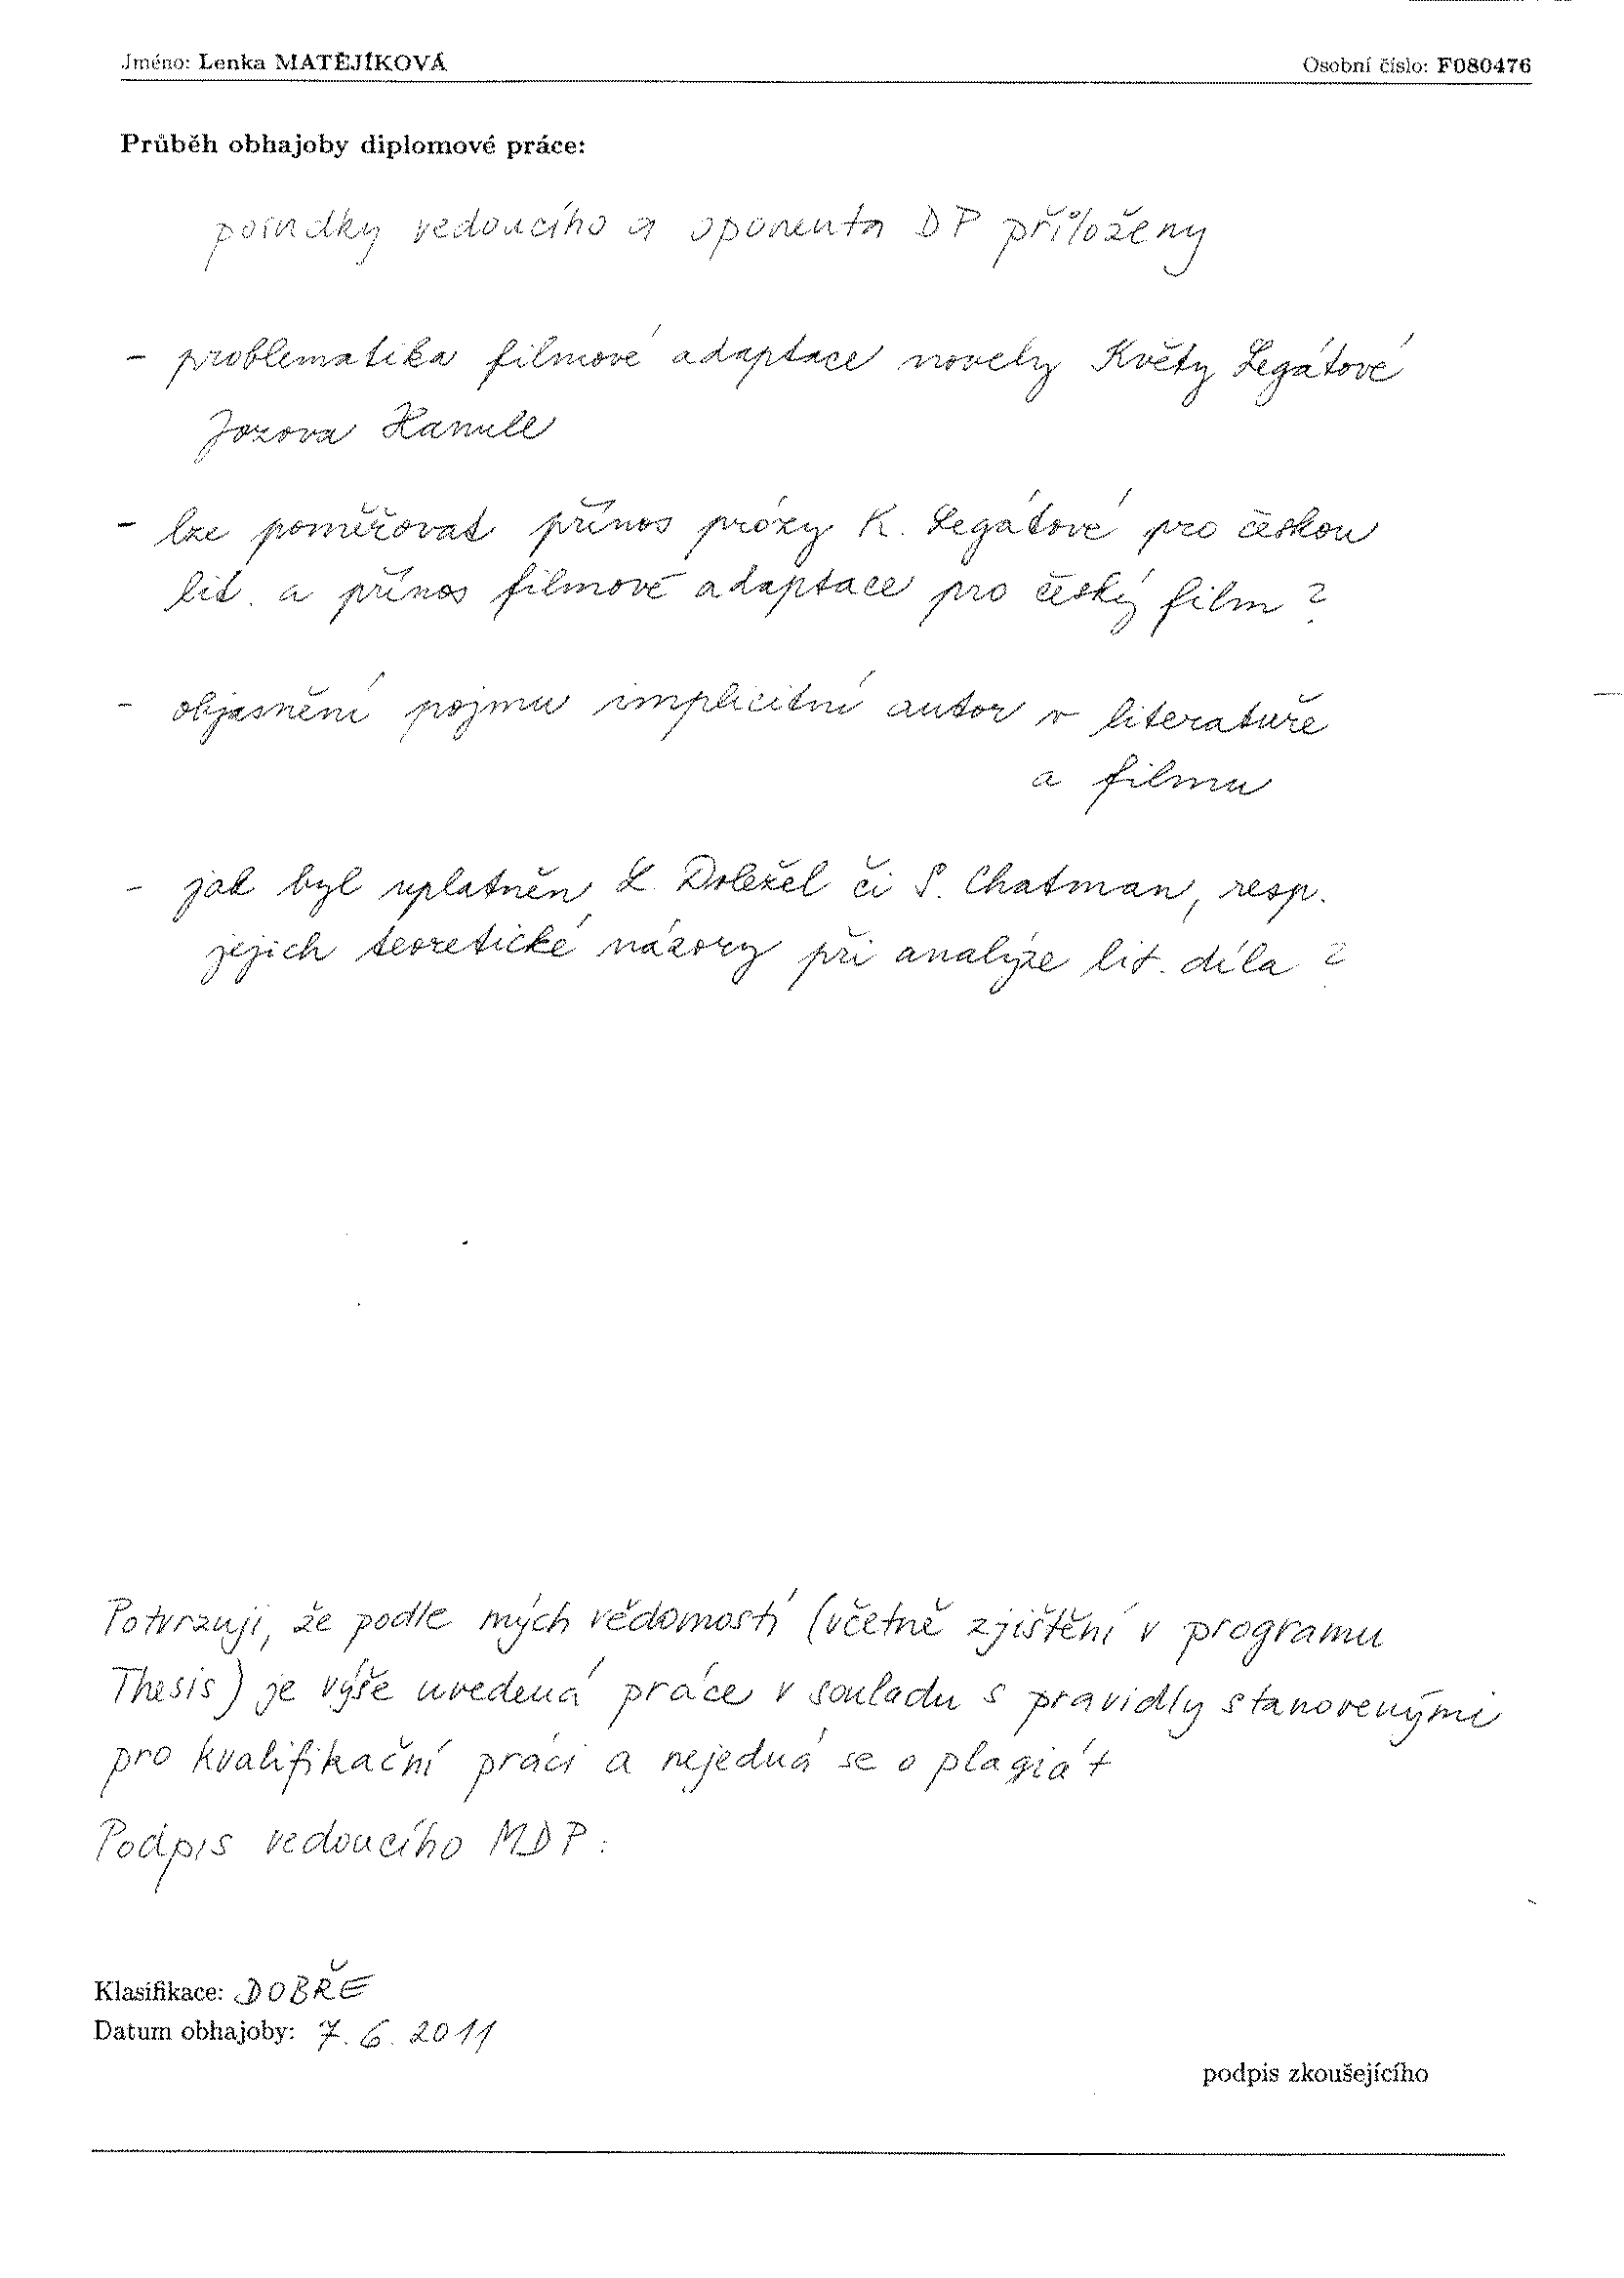 Jméno: Lenka MATĚJÍKOVÁ Osobní číslo: F080476
Průběh obhajoby diplomové práce:
posudky vedoucího a oponenta DP přiloženy
- problematika filmové adaptace novely Květy Legátové
Jozova Hanule
- lze poměřovat přínos prózy K. Legátové pro českou
lit. a přínos filmové adaptace pro český film?
- objasnění pojmu implicitní autor v literatuře
a filmu
- jak byl uplatněn L. Doležel či S. Chatman, resp.
jejich teoretické názory při analýze lit. díla?
Potvrzuji, že podle mých vědomostí (včetně zjištění v programu
Thesis) je výše uvedená práce v souladu s pravidly stanovenými
pro kvalifikační práci a nejedná se o plagiát
Podpis vedoucího MDP:
Klasifikace: DOBŘE
Datum obhajoby: 7. 6. 2011
podpis zkoušejícího